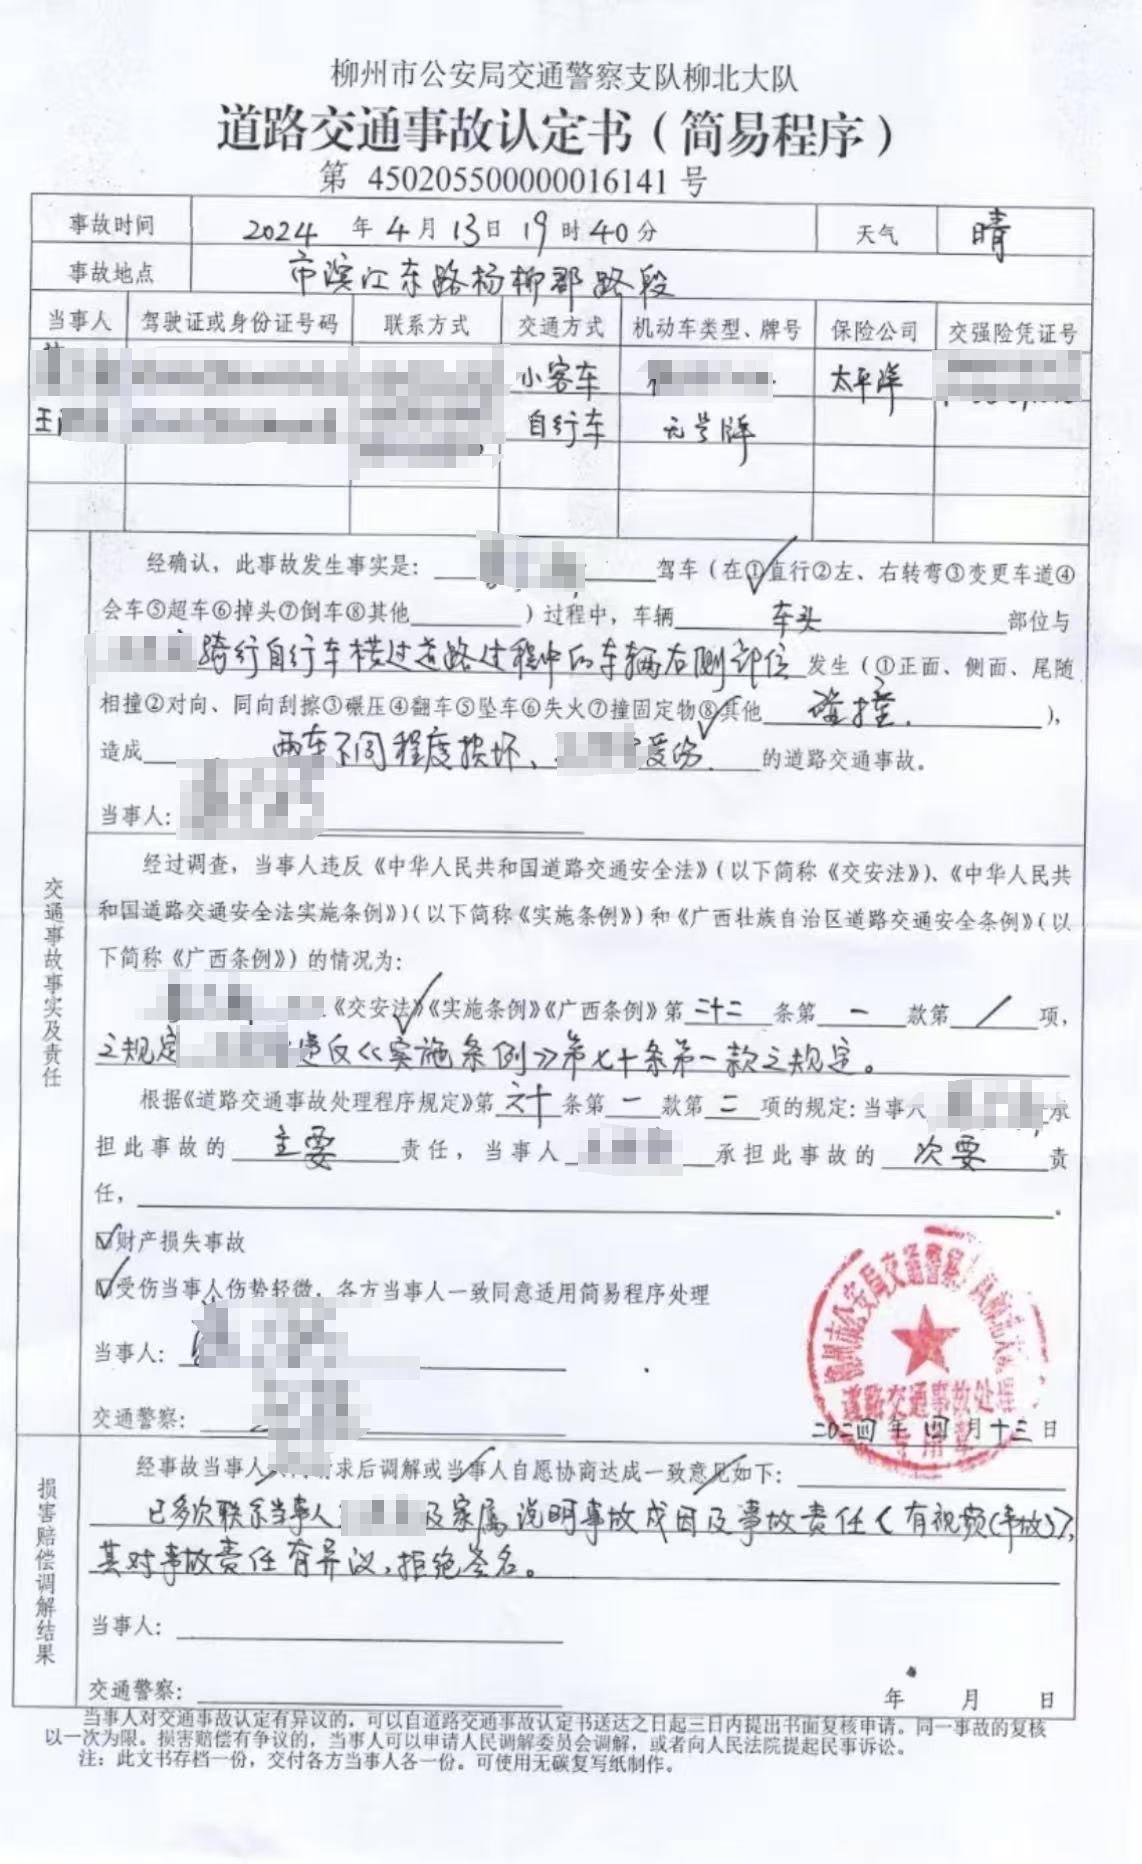 柳州市公安局交通警察支队柳北大队
道路交通事故认定书（简易程序）
第 450205500000016141 号
事故时间 2024 年 4 月 13 日 19 时 40 分 天气 晴
事故地点 市滨江东路杨柳郡路段
当事人 驾驶证或身份证号码 联系方式 交通方式 机动车类型、牌号 保险公司 交强险凭证号
小客车 太平洋
王 自行车 无号牌
经确认，此事故发生事实是： 驾车（在①直行②左、右转弯③变更车道④
会车⑤超车⑥掉头⑦倒车⑧其他 ）过程中，车辆 车头 部位与
骑行自行车横过道路过程中的车辆右侧部位 发生（①正面、侧面、尾随
相撞②对向、同向刮擦③碾压④翻车⑤坠车⑥失火⑦撞固定物⑧其他 碰撞. ），
造成 两车不同程度损坏、 受伤. 的道路交通事故。
当事人：
交通事故事实及责任
经过调查，当事人违反《中华人民共和国道路交通安全法》（以下简称《交安法》）、《中华人民共
和国道路交通安全法实施条例》）（以下简称《实施条例》）和《广西壮族自治区道路交通安全条例》（以
下简称《广西条例》）的情况为：
《交安法》《实施条例》《广西条例》第 二十二 条第 一 款第 / 项，
之规定 违反《实施条例》第七十条第一款之规定。
根据《道路交通事故处理程序规定》第 六十 条第 一 款第 二 项的规定：当事人 承
担此事故的 主要 责任，当事人 承担此事故的 次要 责
任， 。
☑财产损失事故
☑受伤当事人伤势轻微，各方当事人一致同意适用简易程序处理
当事人：
交通警察：
柳州市公安局交通警察 队柳北大
道路交通事故处理
专用章
二〇二四 年 四 月 十三 日
损害赔偿调解结果
经事故当事人 请求后调解或当事人自愿协商达成一致意见如下：
已多次联系当事人 及家属，说明事故成因及事故责任（有视频（事故）），
其对事故责任有异议，拒绝签名。
当事人：
交通警察： 年 月 日
当事人对交通事故认定有异议的，可以自道路交通事故认定书送达之日起三日内提出书面复核申请。同一事故的复核
以一次为限。损害赔偿有争议的，当事人可以申请人民调解委员会调解，或者向人民法院提起民事诉讼。
注：此文书存档一份，交付各方当事人各一份。可使用无碳复写纸制作。